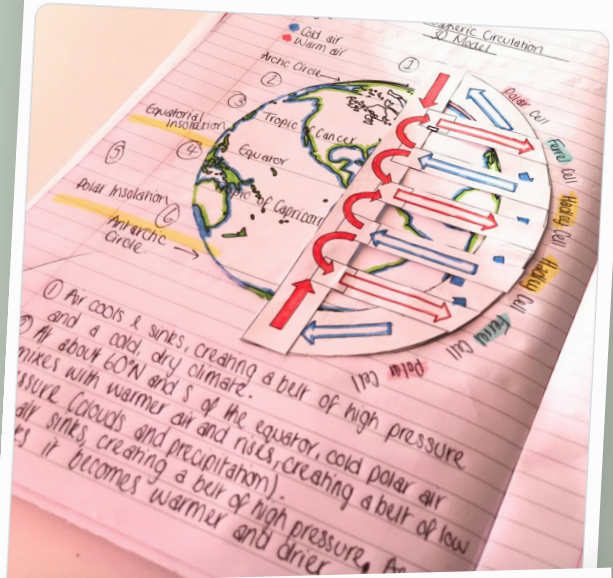 Circulation
3D Model
Cold air
Warm air
Arctic Circle
①
②
③
Equatorial
Insolation
Tropic of Cancer
④
Equator
⑤
Polar Insolation
of Capricorn
⑥
Antarctic
Circle
Polar Cell
Ferrel Cell
Hadley Cell
Hadley Cell
Ferrel Cell
Polar Cell
① Air cools & sinks, creating a belt of high pressure
and a cold, dry climate.
At about 60°N and S of the equator, cold polar air
mixes with warmer air and rises, creating a belt of low
(clouds and precipitation).
air sinks, creating a belt of high pressure.
it becomes warmer and drier